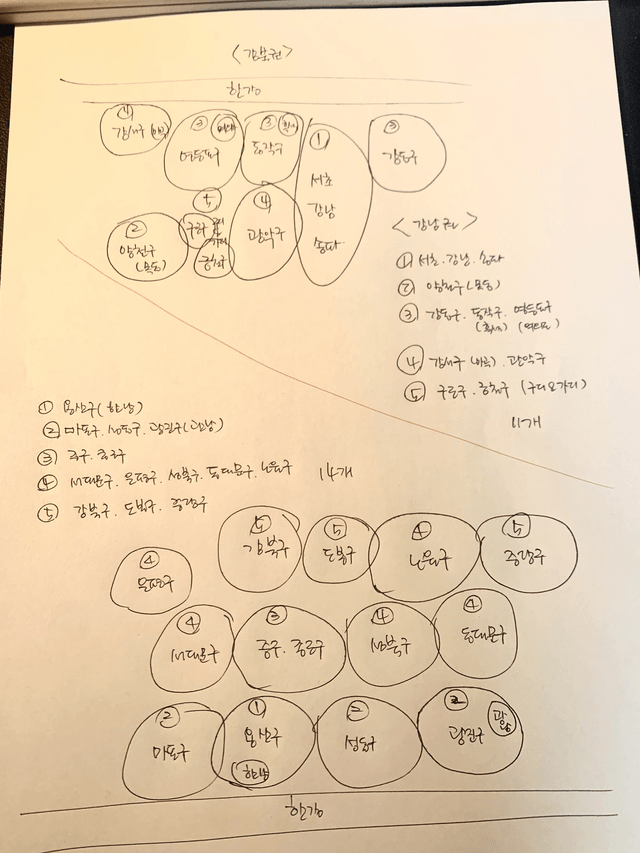 <강북권>
한강
④ 강서구 (마곡)
③ 영등포구 여의
③ 동작구 흑석
① 서초 강남 송파
③ 강동구
⑤ 구로 구디 가디 금천구
④ 관악구
② 양천구 (목동)
<강남권>
① 서초. 강남. 송파
② 양천구 (목동)
③ 강동구. 동작구. 영등포구
(흑석) (여의도)
④ 강서구 (마곡). 관악구
⑤ 구로구. 금천구 (구디 & 가디)
11개
① 용산구 (한남)
② 마포구. 성동구. 광진구 (광남)
③ 중구. 종로구
④ 서대문구. 은평구. 성북구. 동대문구. 노원구
14개
⑤ 강북구. 도봉구. 중랑구
⑤ 강북구
⑤ 도봉구
④ 노원구
⑤ 중랑구
④ 은평구
④ 서대문구
③ 중구. 종로구
④ 성북구
④ 동대문구
② 마포구
① 용산구 한남
② 성동구
② 광진구 광남
한강